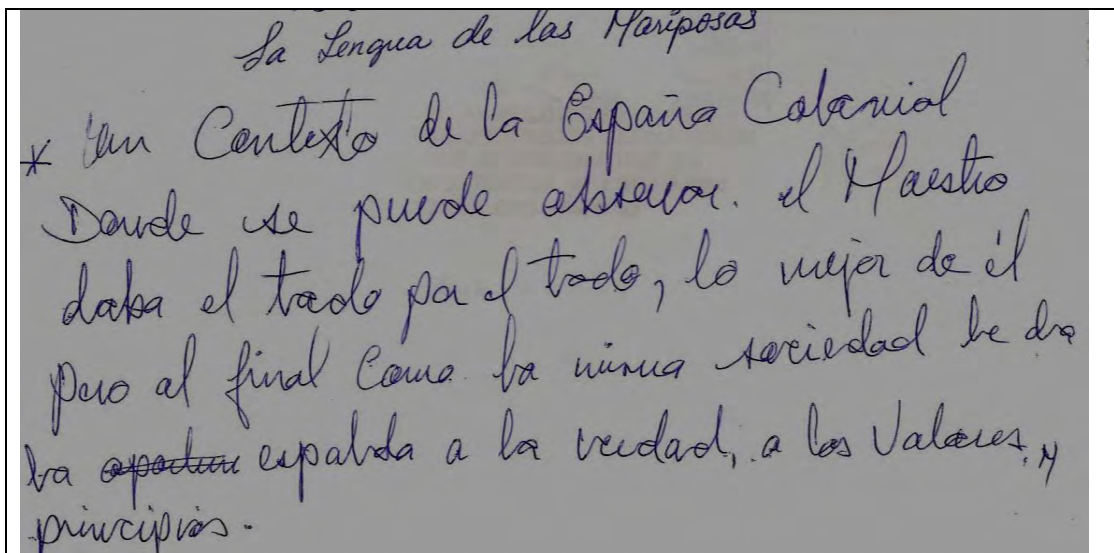 La Lengua de las Mariposas
* un Contexto de la España Colonial
Donde se puede observar. el Maestro
daba el todo por el todo, lo mejor de él
pero al final como la misma sociedad le da
la espalda a la verdad, a los Valores, y
principios.